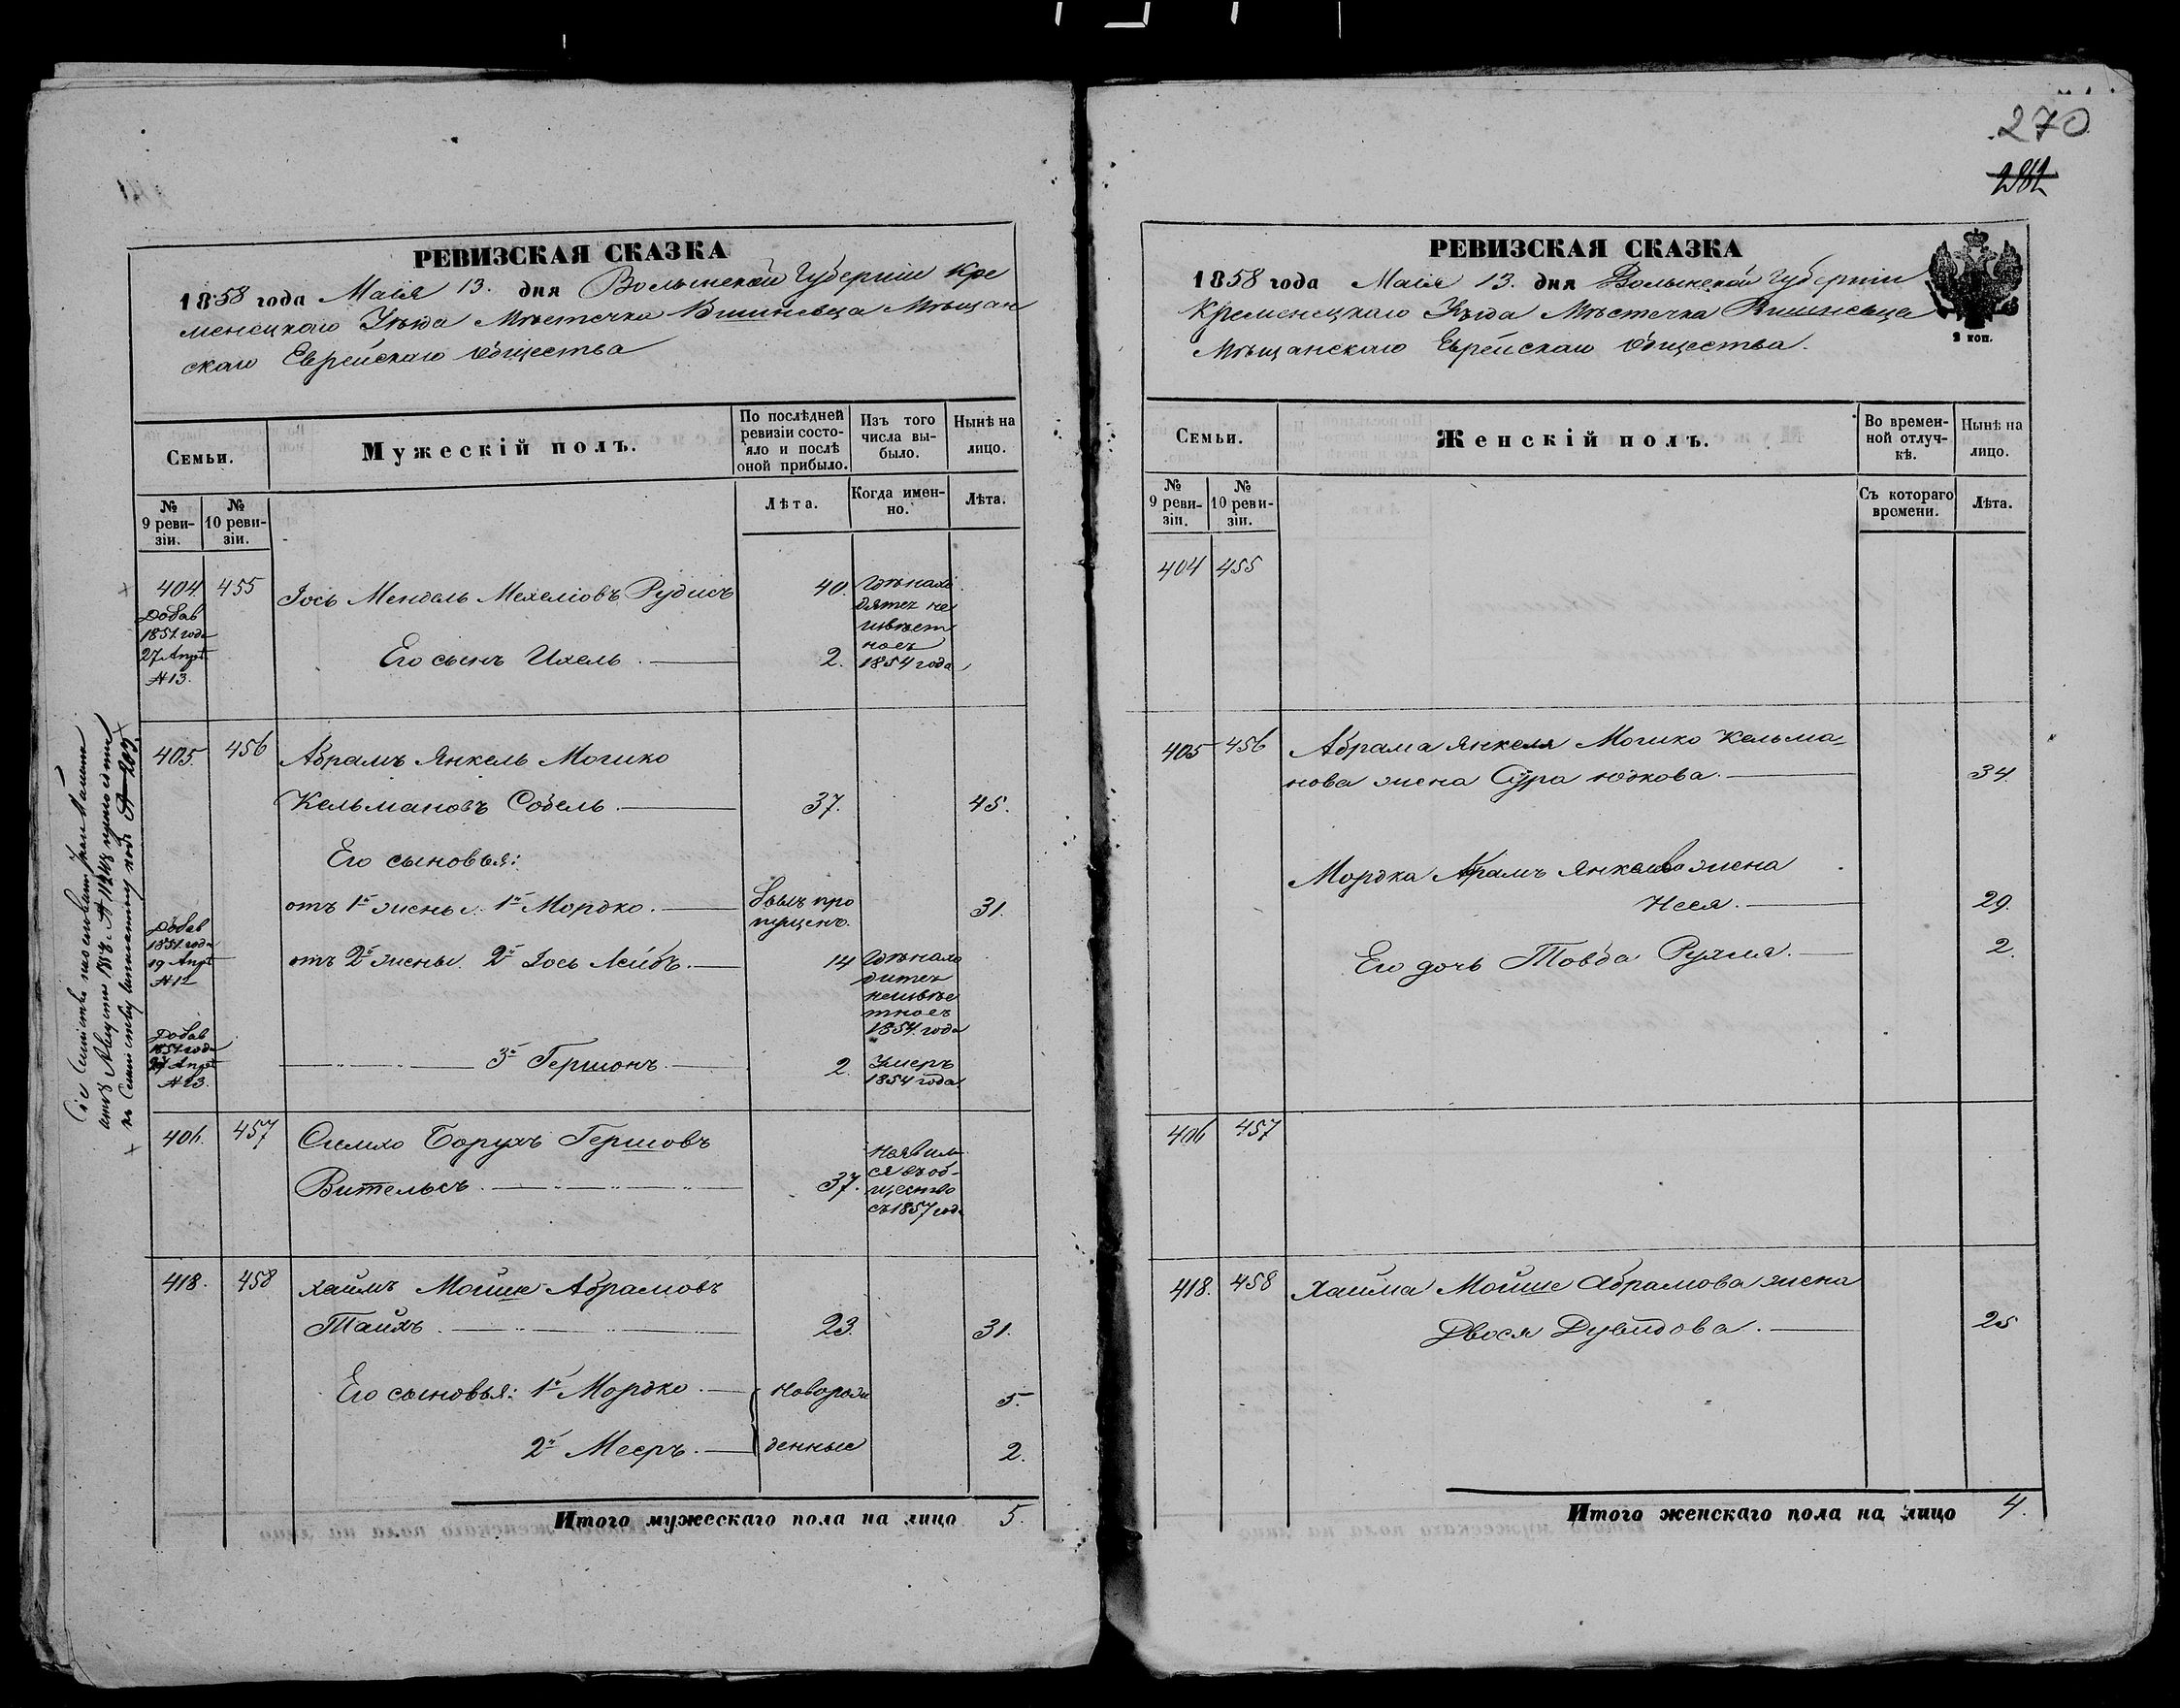 270
282
РЕВИЗСКАЯ СКАЗКА
1858 года Маія 13. дня Волынской Губерніи Кре
менецкаго Уѣзда Мѣстечка Вишневца Мѣщан
скаго Еврейскаго Общества
Семьи.
Мужескій полъ.
По послѣдней ревизіи состояло и послѣ оной прибыло.
Изъ того числа выбыло.
Нынѣ на лицо.
№ 9 ревизіи.
№ 10 ревизіи.
Лѣта.
Когда именно.
Лѣта.
404. 455 Іось Мендель Мехеліовъ Рудисъ 40.
Добав
1851. года
27 Апрл
№ 13.
Его сынъ Ихель. 2.
Гдѣ нахо
дятся не
извѣст
но съ
1854 года
405. 456 Абрамъ Янкель Мошко
Кельмановъ Собель. 37. 45.
Его сыновья:
отъ 1й жены. 1й Мордко. былъ про
пущенъ. 31.
Добав
1851. года
19 Апрл
№ 12
отъ 2й жены. 2й Іось Лейбъ. 14
Гдѣ нахо
дится
неизвѣс
тно съ
1854. года
Добав
1851 года
27 Апрл
№ 13.
3й Гершонъ. 2.
Умеръ
1854 года.
406. 457 Симхо Борухъ Гершовъ
Вительсъ. 37.
Неявил
ся въ об-
щество
съ 1857 года
418. 458 Хаимъ Мойше Абрамовъ
Тайхъ. 23. 31.
Его сыновья: 1й Мордко. новорож 5.
2й Мееръ. денные 2.
Итого мужескаго пола на лицо 5.
РЕВИЗСКАЯ СКАЗКА
1858 года Маія 13. дня Волынской Губерніи
Кременецкаго Уѣзда Мѣстечка Вишневца
Мѣщанскаго Еврейскаго Общества.
2 коп.
Семьи.
Женскій полъ.
Во временной отлучкѣ.
Нынѣ на лицо.
№ 9 ревизіи.
№ 10 ревизіи.
Съ котораго времени.
Лѣта.
404 455
405 456 Абрама Янкеля Мошко Кельма-
нова жена Сура Юдкова. 34.
Мордка Абрамъ Янкелево жена
Неся. 29.
Его дочь Товба Рухля. 2.
406 457
418. 458 Хаима Мойше Абрамова жена
Двося Дувидова. 25
Итого женскаго пола на лицо 4.